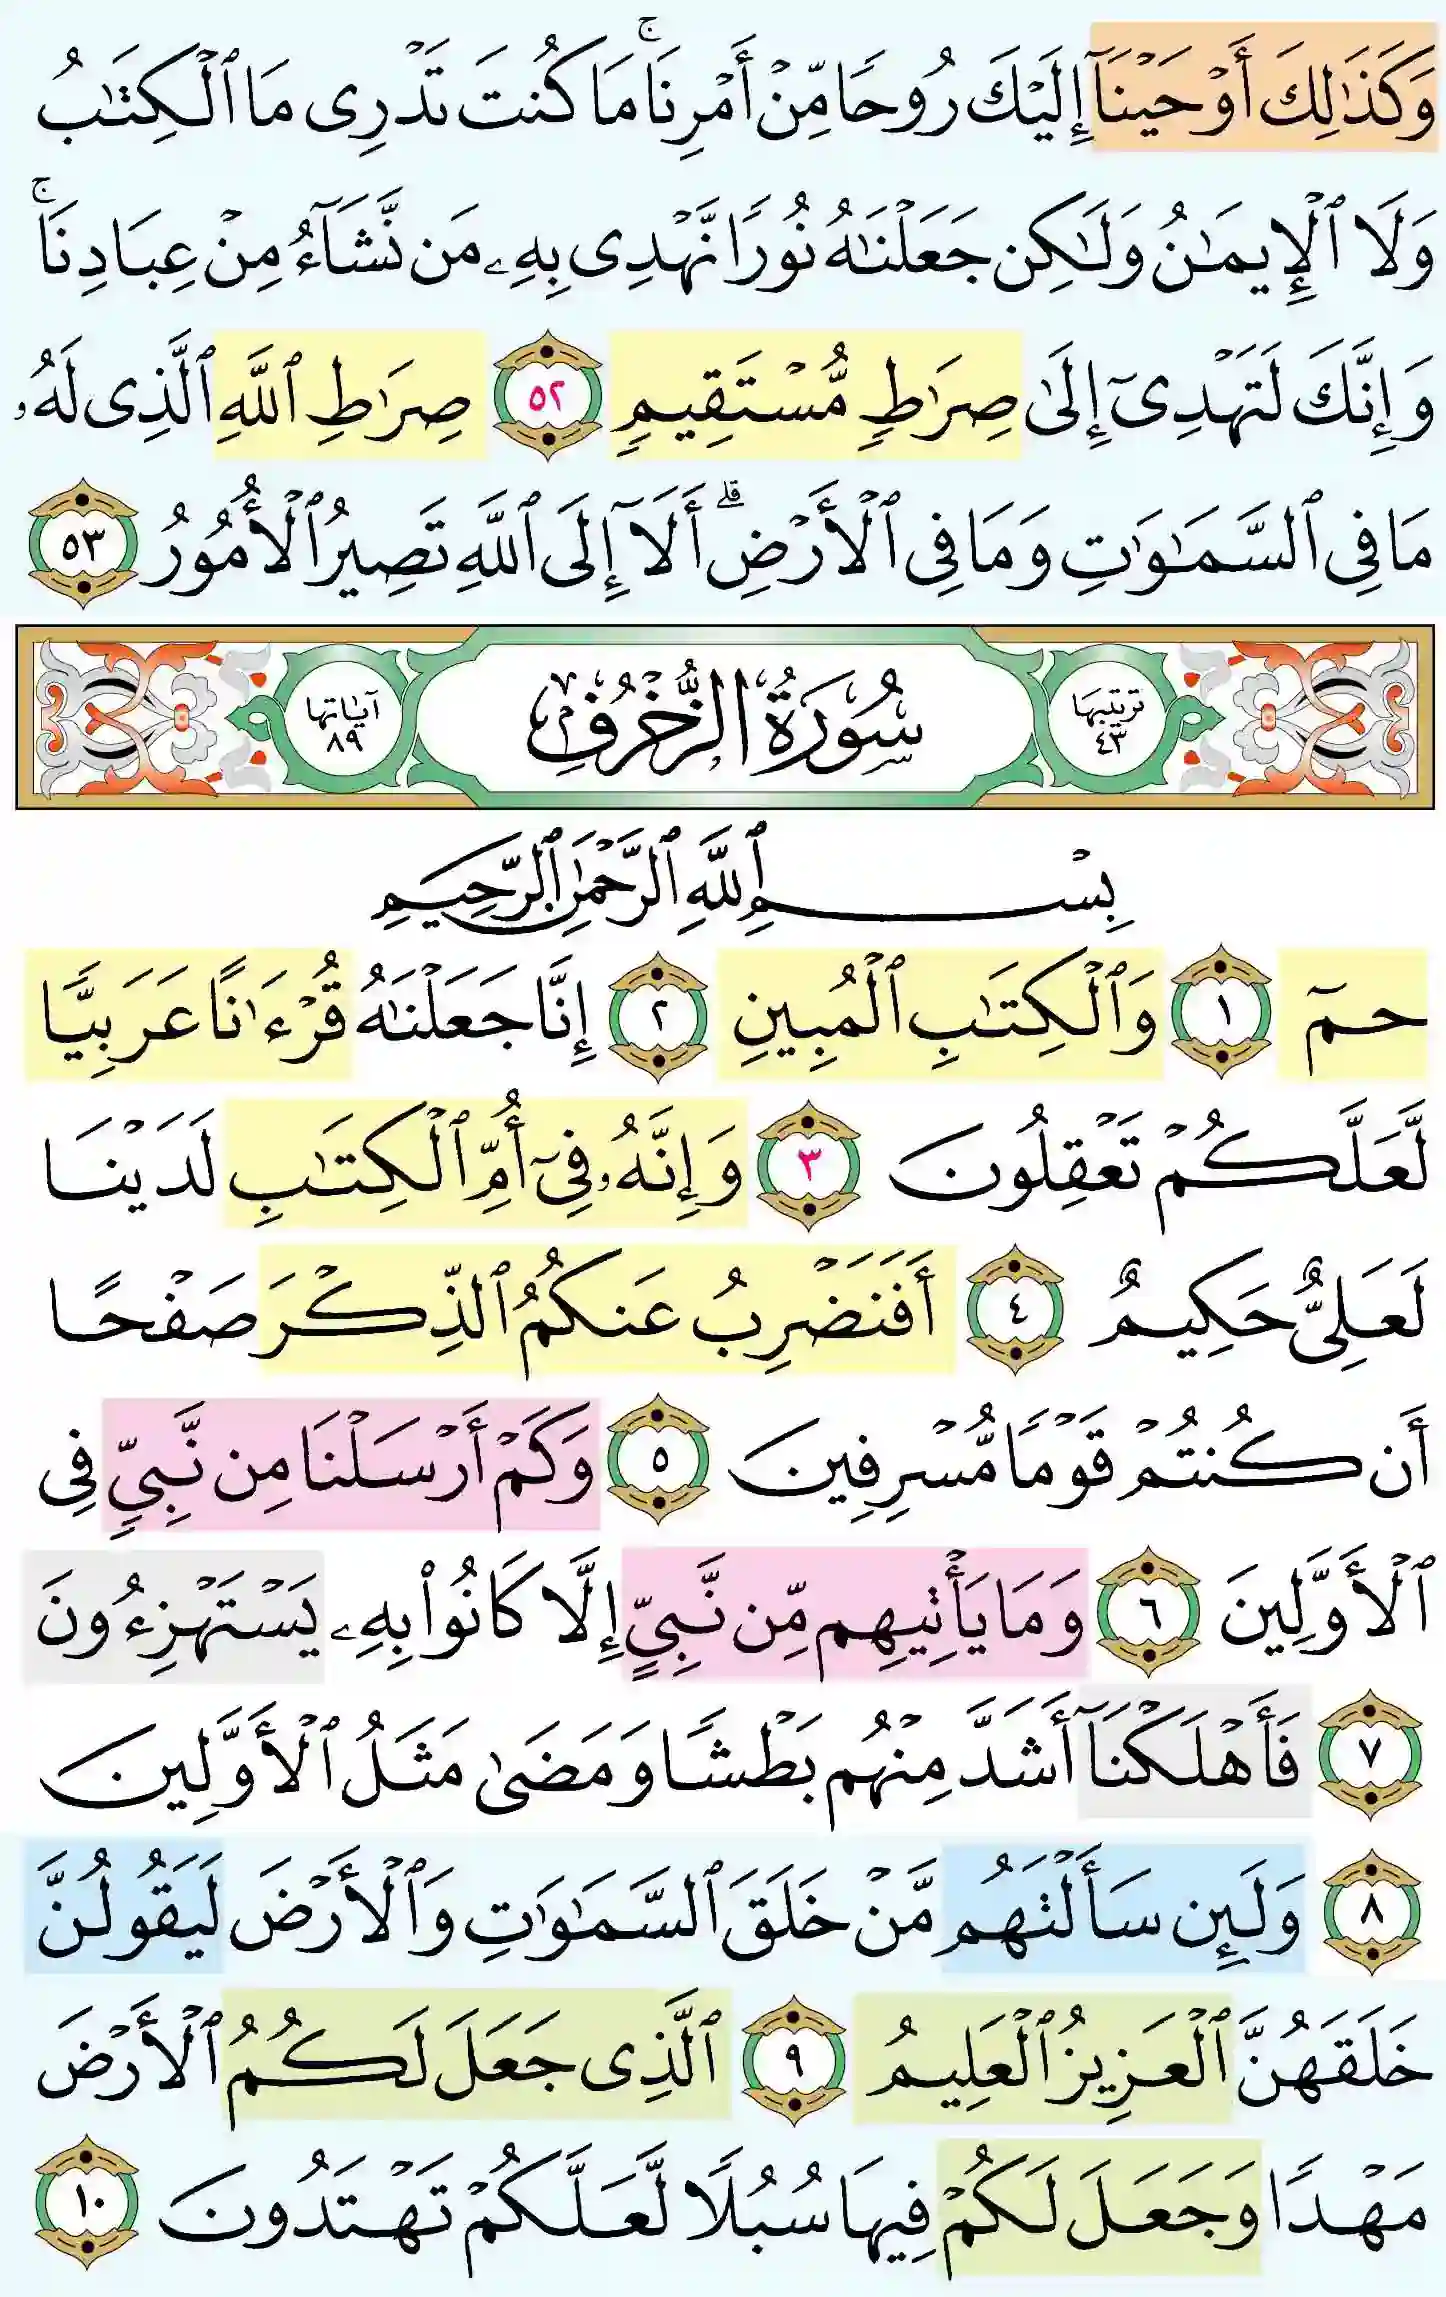 وَكَذَٰلِكَ أَوْحَيْنَآ إِلَيْكَ رُوحًا مِّنْ أَمْرِنَا ۚ مَا كُنتَ تَدْرِى مَا ٱلْكِتَٰبُ
وَلَا ٱلْإِيمَٰنُ وَلَٰكِن جَعَلْنَٰهُ نُورًا نَّهْدِى بِهِۦ مَن نَّشَآءُ مِنْ عِبَادِنَا ۚ
وَإِنَّكَ لَتَهْدِىٓ إِلَىٰ صِرَٰطٍ مُّسْتَقِيمٍ ٥٢ صِرَٰطِ ٱللَّهِ ٱلَّذِى لَهُۥ
مَا فِى ٱلسَّمَٰوَٰتِ وَمَا فِى ٱلْأَرْضِ ۗ أَلَآ إِلَى ٱللَّهِ تَصِيرُ ٱلْأُمُورُ ٥٣
ترتيبها ٤٣ سُورَةُ الزُّخْرُفِ آياتها ٨٩
بِسْمِ ٱللَّهِ ٱلرَّحْمَٰنِ ٱلرَّحِيمِ
حمٓ ١ وَٱلْكِتَٰبِ ٱلْمُبِينِ ٢ إِنَّا جَعَلْنَٰهُ قُرْءَٰنًا عَرَبِيًّا
لَّعَلَّكُمْ تَعْقِلُونَ ٣ وَإِنَّهُۥ فِىٓ أُمِّ ٱلْكِتَٰبِ لَدَيْنَا
لَعَلِىٌّ حَكِيمٌ ٤ أَفَنَضْرِبُ عَنكُمُ ٱلذِّكْرَ صَفْحًا
أَن كُنتُمْ قَوْمًا مُّسْرِفِينَ ٥ وَكَمْ أَرْسَلْنَا مِن نَّبِىٍّ فِى
ٱلْأَوَّلِينَ ٦ وَمَا يَأْتِيهِم مِّن نَّبِىٍّ إِلَّا كَانُوا۟ بِهِۦ يَسْتَهْزِءُونَ
٧ فَأَهْلَكْنَآ أَشَدَّ مِنْهُم بَطْشًا وَمَضَىٰ مَثَلُ ٱلْأَوَّلِينَ
٨ وَلَئِن سَأَلْتَهُم مَّنْ خَلَقَ ٱلسَّمَٰوَٰتِ وَٱلْأَرْضَ لَيَقُولُنَّ
خَلَقَهُنَّ ٱلْعَزِيزُ ٱلْعَلِيمُ ٩ ٱلَّذِى جَعَلَ لَكُمُ ٱلْأَرْضَ
مَهْدًا وَجَعَلَ لَكُمْ فِيهَا سُبُلًا لَّعَلَّكُمْ تَهْتَدُونَ ١٠